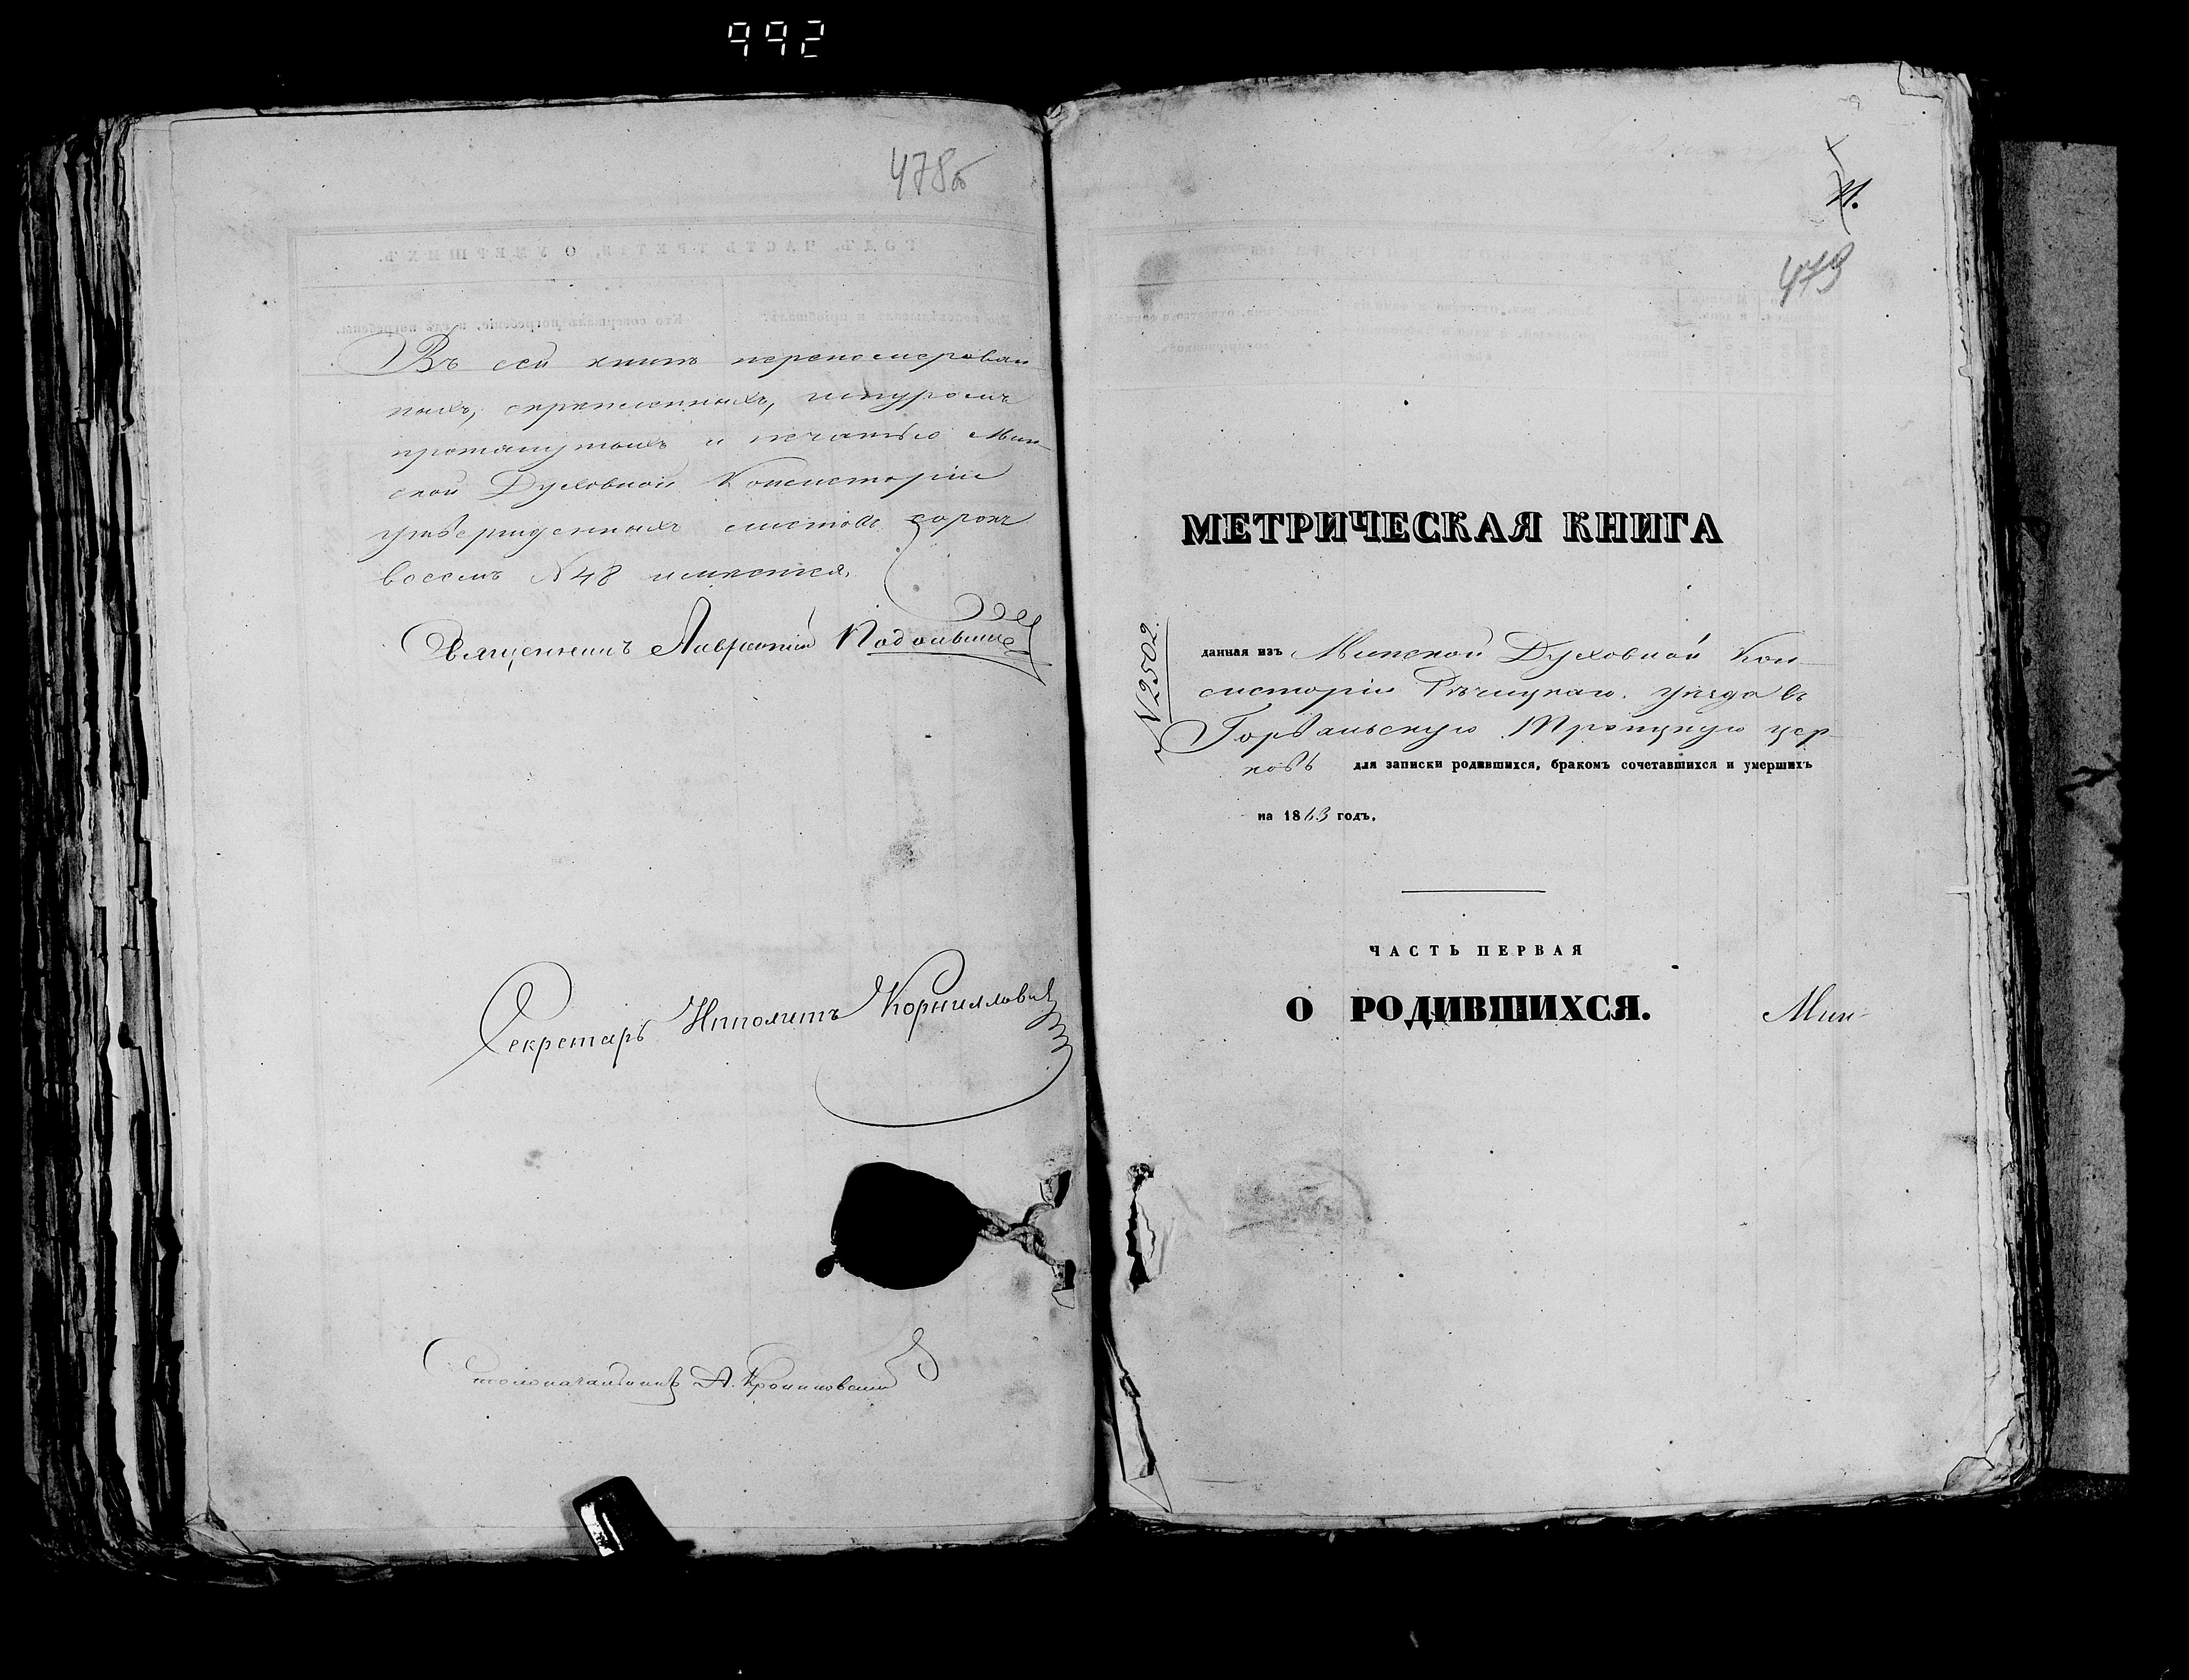 992
478б
Въ сей книгѣ перенумерован
ныхъ, скрѣпленныхъ, шнуромъ
протянутыхъ и печатью Мин-
ской Духовной Консисторіи
утвержденныхъ листовъ сорокъ
восемь N 48 имѣется.
Священникъ Лаврентій
Секретарь Ипполитъ Корниллович
Столоначальникъ А.
479
МЕТРИЧЕСКАЯ КНИГА
N 2502.
данная изъ Минской Духовной Кон-
систоріи Рѣчицкаго уѣзда въ
Горвальскую Троицкую цер-
ковь для записки родившихся, бракомъ сочетавшихся и умершихъ
на 1863 годъ.
ЧАСТЬ ПЕРВАЯ
О РОДИВШИХСЯ.
Мин-